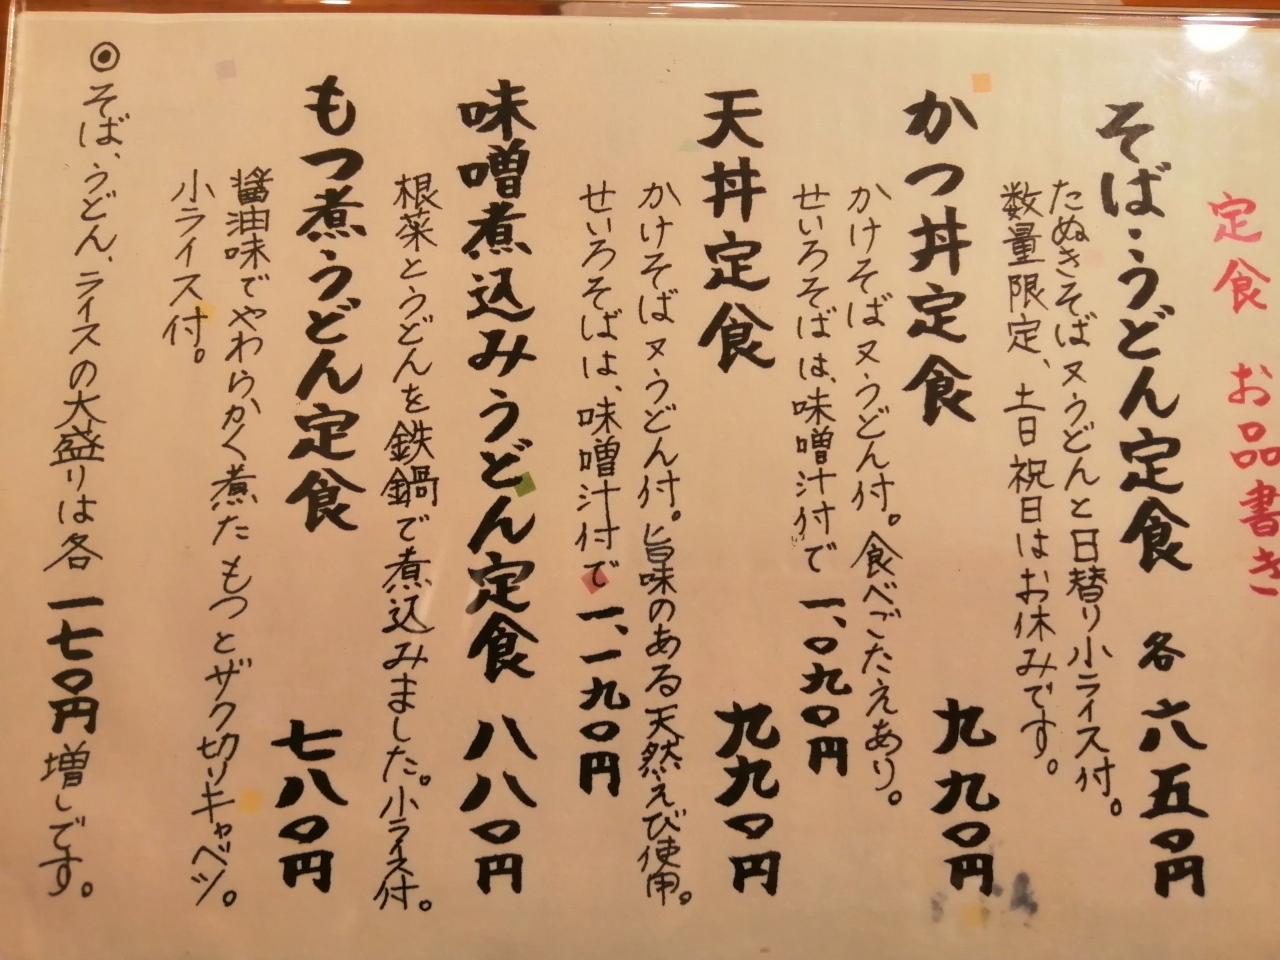 定食 お品書き
そば・うどん定食 各六五〇円
たぬきそば又うどんと日替り小ライス付。
数量限定、土日祝日はお休みです。
かつ丼定食 九九〇円
かけそば又うどん付。食べごたえあり。
せいろそばは、味噌汁付で 一、〇九〇円
天丼定食 九九〇円
かけそば又うどん付。旨味のある天然えび使用。
せいろそばは、味噌汁付で 一、一九〇円
味噌煮込みうどん定食 八八〇円
根菜とうどんを鉄鍋で煮込みました。小ライス付。
もつ煮うどん定食 七八〇円
醤油味でやわらかく煮たもつとザク切りキャベツ。
小ライス付。
◎そば、うどん、ライスの大盛りは各一七〇円増しです。